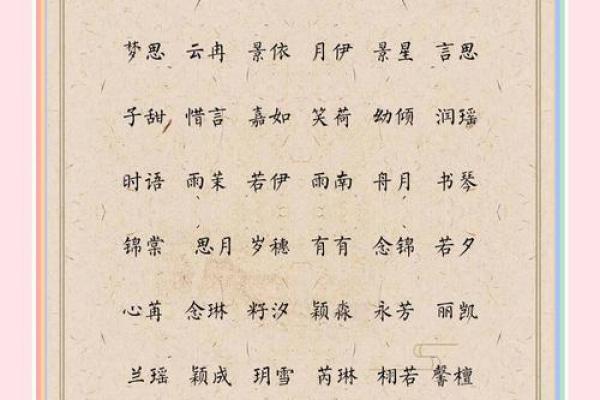 梦思 云冉 景依 月伊 景星 言思
子甜 惜言 嘉如 笑荷 幼倾 润瑶
时语 雨茉 若伊 雨南 舟月 书琴
锦棠 思月 岁穗 有有 念锦 若夕
心苒 念琳 籽汐 颖淼 永芳 丽凯
兰瑶 颖成 玥雪 芮琳 栩若 馨檀